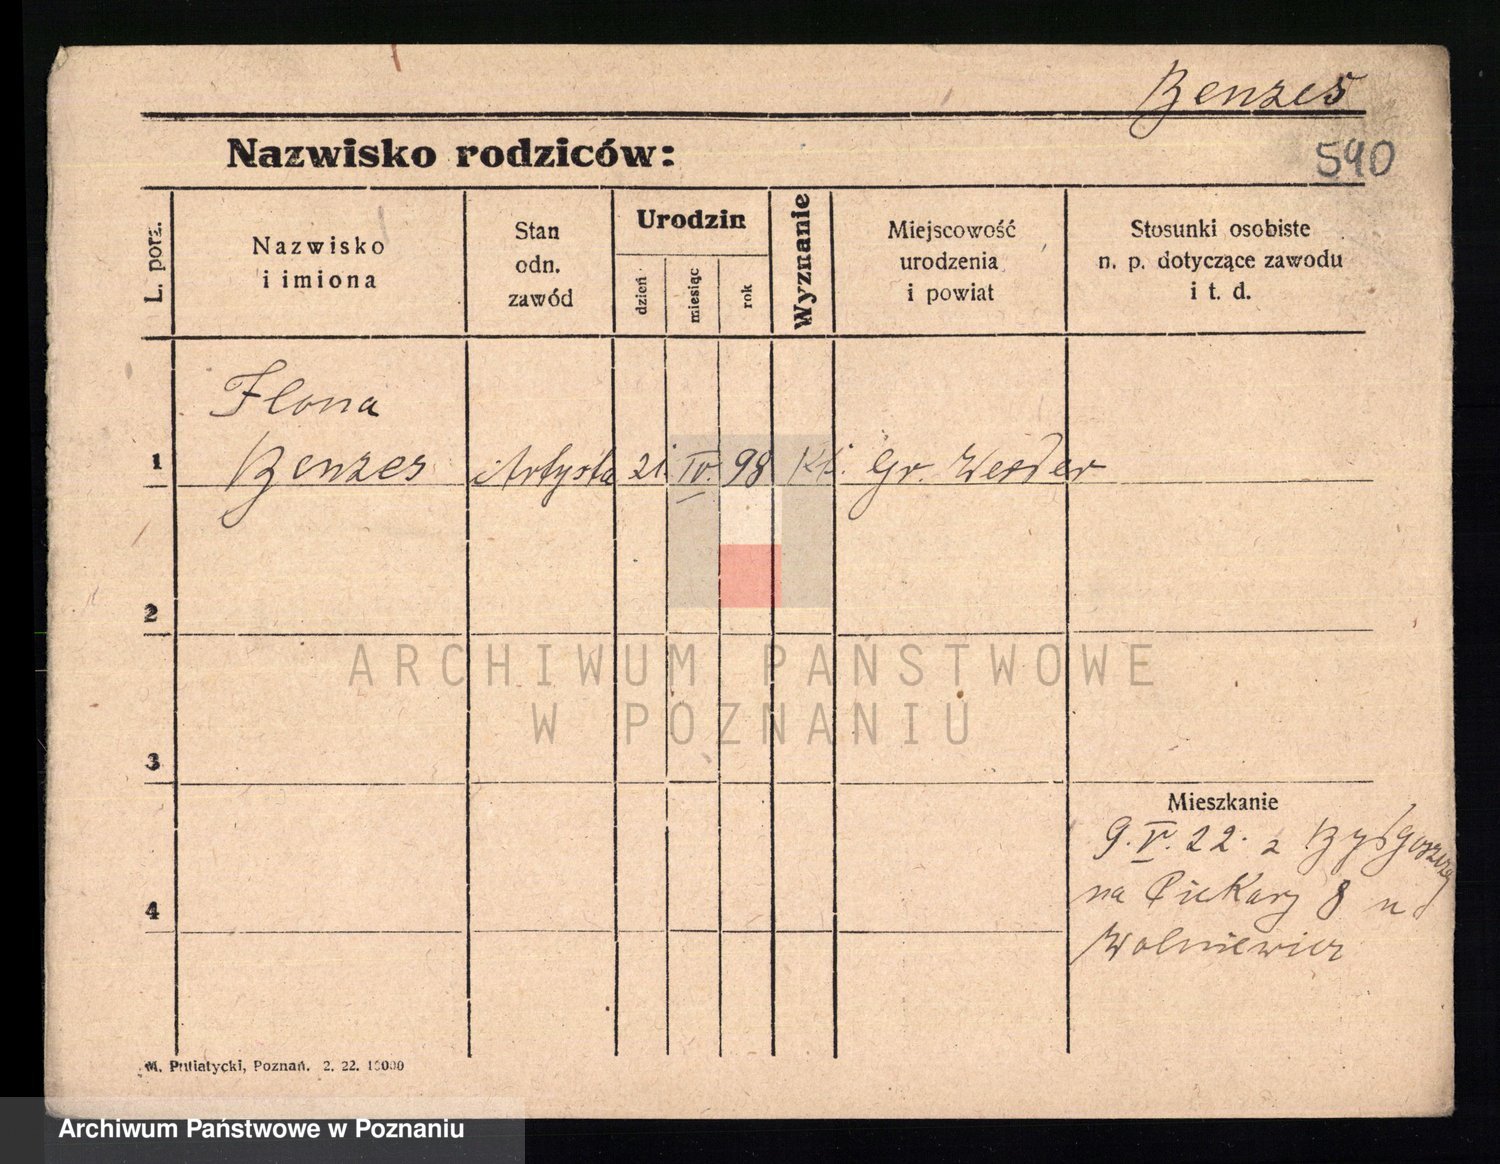 Benzes
Nazwisko rodziców:
590
L. porz.
Nazwisko
i imiona
Stan
odn.
zawód
Urodzin
dzień
miesiąc
rok
Wyznanie
Miejscowość
urodzenia
i powiat
Stosunki osobiste
n. p. dotyczące zawodu
i t. d.
Ilona
1 Benzes Artysta 21. IV. 98 Kt. Gr. Werder
2
ARCHIWUM PAŃSTWOWE
W POZNANIU
3
Mieszkanie
9. V. 22. z Bydgoszczy
na Piekary 8 u
4
Wolniewicz
M. Putiatycki, Poznań. 2. 22. 10000
Archiwum Państwowe w Poznaniu